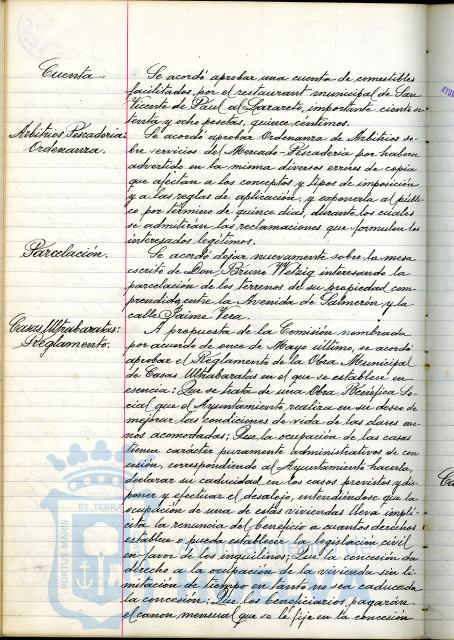 Cuenta.
Se acordó aprobar una cuenta de comestibles
facilitados por el restaurant municipal de San
Vicente de Paul al Lazareto, importante ciento se-
tenta y ocho pesetas, quince céntimos.
Arbitrios Pescadería:
Ordenanza.
Se acordó aprobar Ordenanza de Arbitrios so-
bre servicios de Mercado-Pescadería por haberse
advertido en la misma diversos errores de copia
que afectan a los conceptos y tipos de imposición
y a las reglas de aplicación, y exponerla al públi-
co por término de quince días, durante los cuales
se admitirán las reclamaciones que formulen los
interesados legítimos.
Parcelación.
Se acordó dejar nuevamente sobre la mesa
escrito de Don Bruno Wetzig interesando la
parcelación de los terrenos de su propiedad com-
prendido entre la Avenida de Salmerón y la
calle Jaime Vera.
Casas Ultrabaratas:
Reglamento:
A propuesta de la Comisión nombrada
por acuerdo de once de Mayo último, se acordó
aprobar el Reglamento de la Obra Municipal
de Casas Ultrabaratas en el que se establece en
esencia: Que se trata de una Obra Benéfica So-
cial que el Ayuntamiento realiza en su deseo de
mejorar las condiciones de vida de las clases me-
nos acomodadas; Que la ocupación de las casas
tienen carácter puramente administrativos de con-
cesión, correspondiendo al Ayuntamiento hacerla,
declarar su caducidad en los casos previstos y dis-
poner y efectuar el desalojo, entendiéndose que la
ocupación de una de estas viviendas lleva implí-
cita la renuncia del beneficio a cuantos derechos
establece o pueda establecer la legislación civil
en favor de los inquilinos; Que la concesión da
derecho a la ocupación de la vivienda sin li-
mitación de tiempo en tanto no sea caducada
la concesión; Que los beneficiarios pagarán
el canon mensual que se le fije en la concesión
PORTUS MARIS
ET TERRA